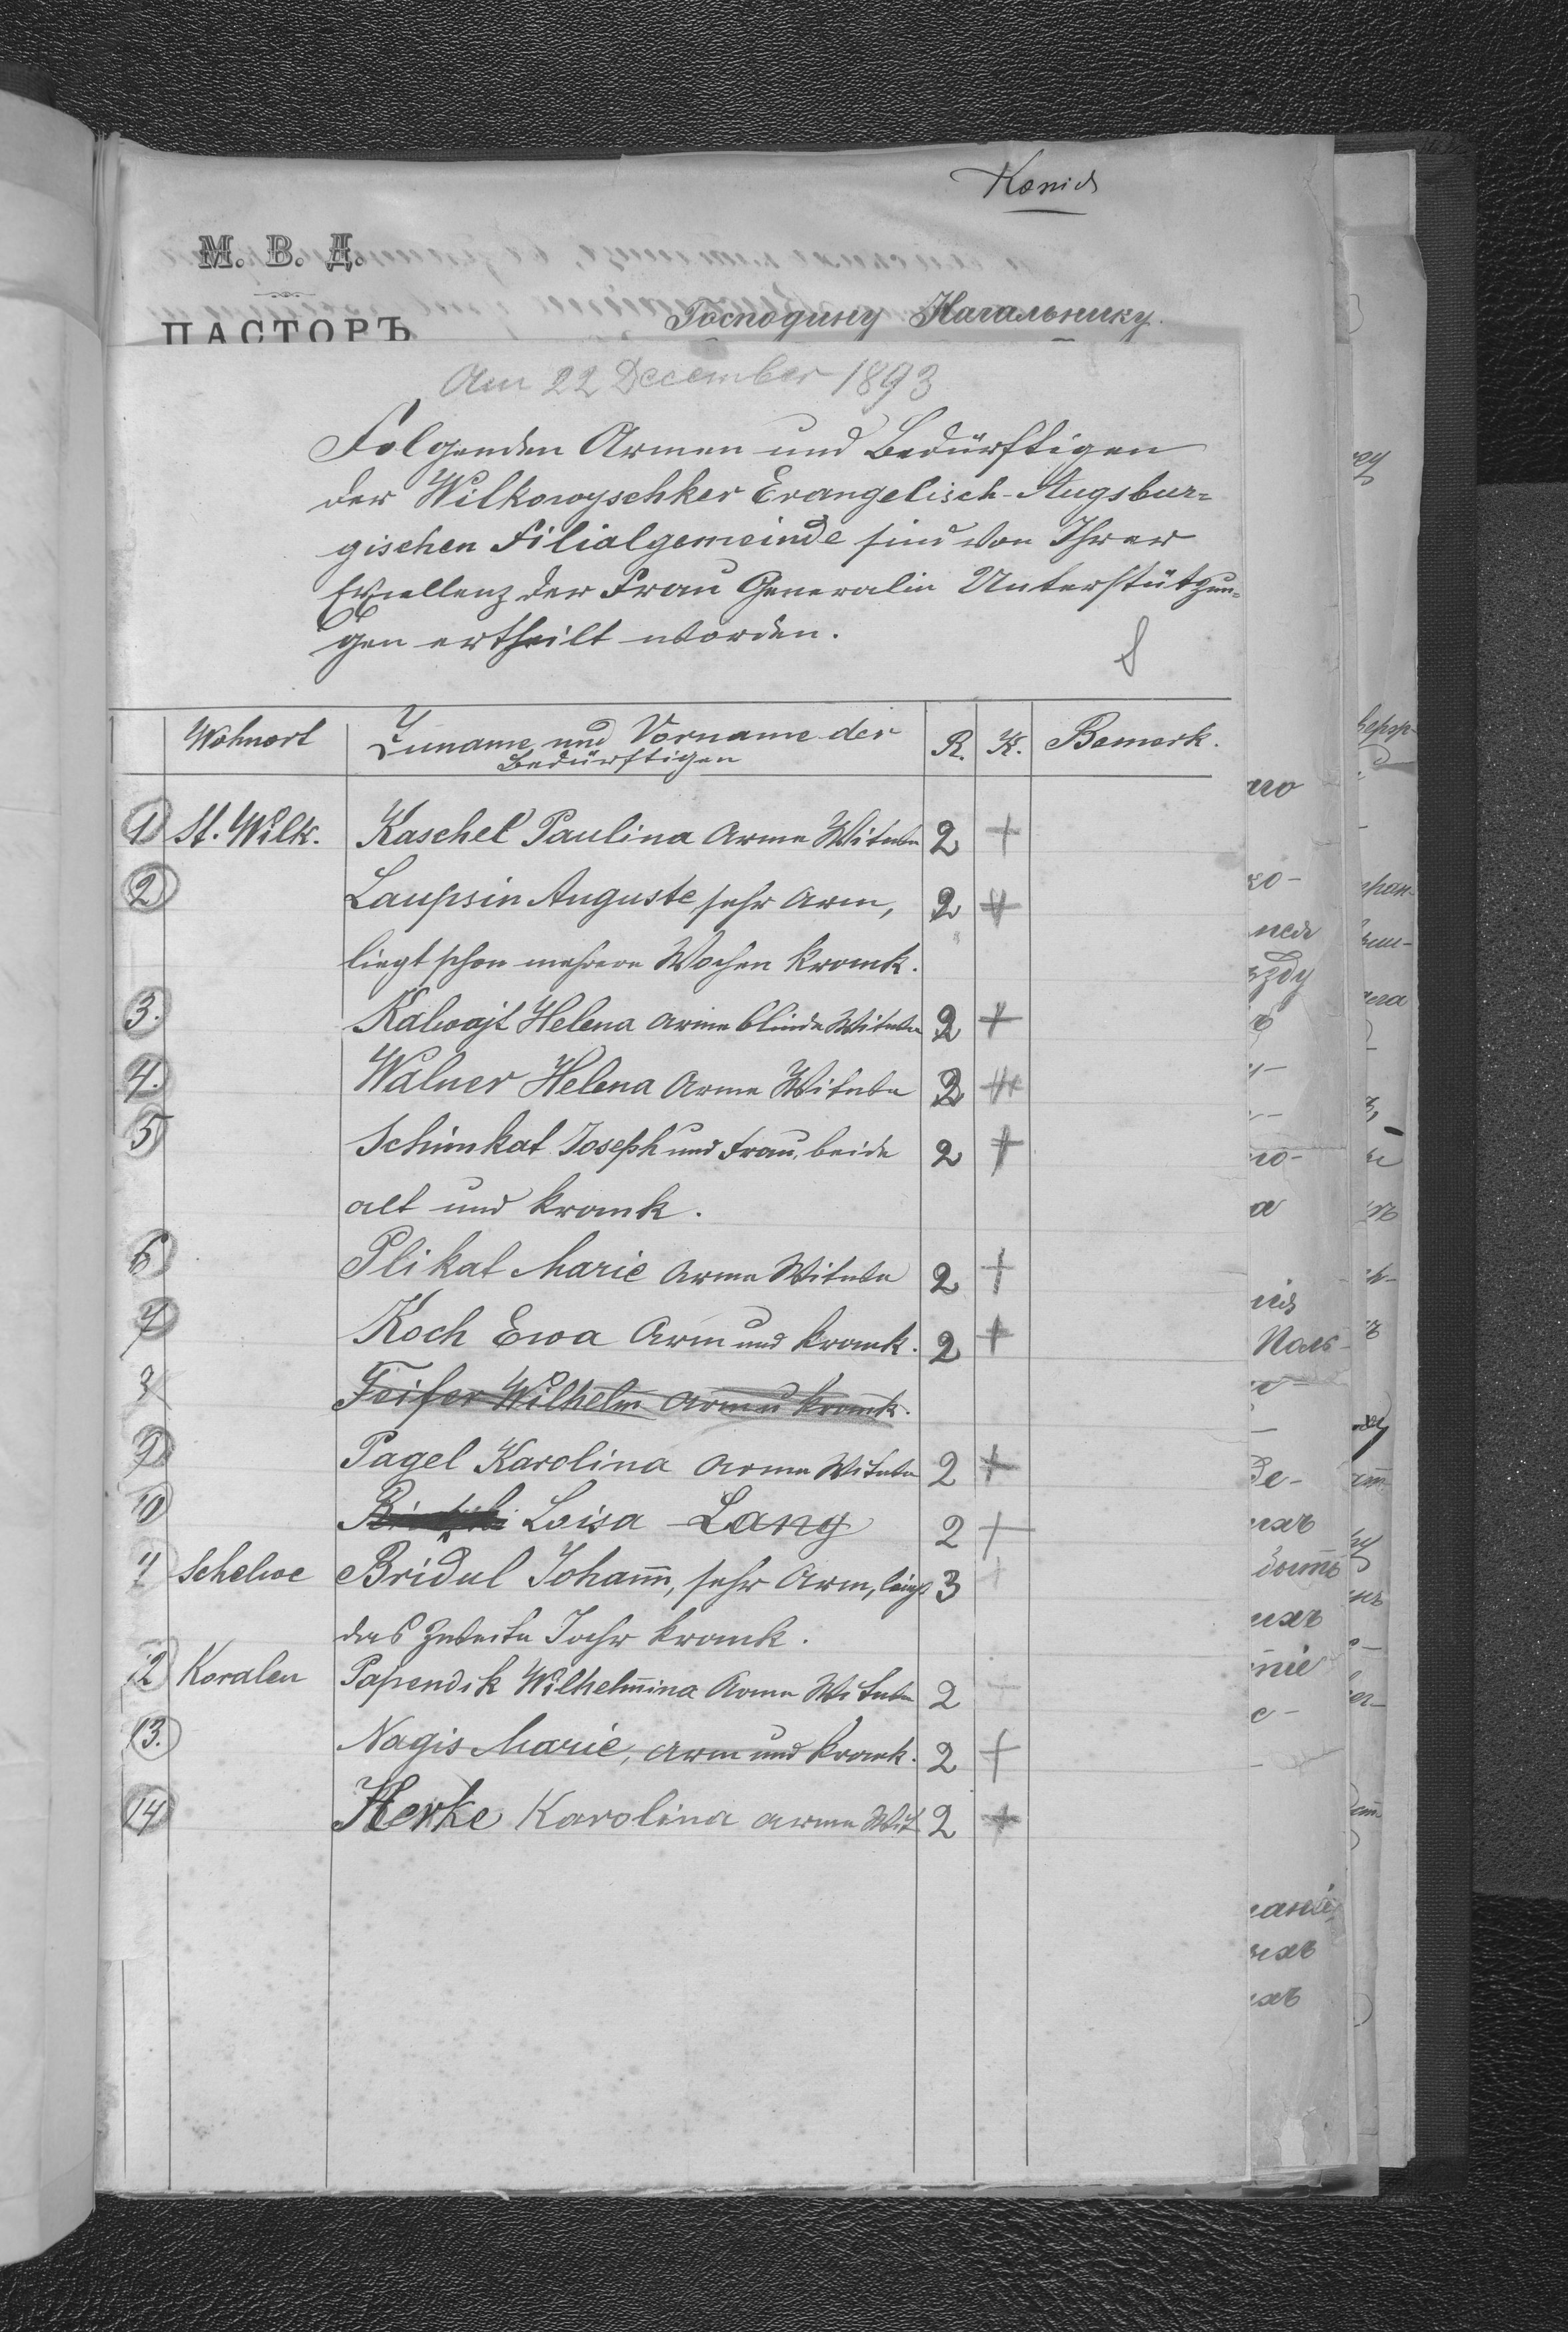 Копія
М. В. Д.
ПАСТОРЪ
Господину Начальнику
Am 22 December 1893
Folgenden Armen und Bedürftigen
der Wilkowyschker Evangelisch-Augsbur=
gischen Filialgemeinde sind von Ihrer
Exellenz der Frau Generalin Unterstützun=
gen ertheilt worden.
Wohnort Zuname und Vorname der Bedürftigen R. K. Bemerk.
1 St. Wilk. Kaschel Paulina Arme Witwe 2 +
2 Laupsin Auguste, sehr Arm, 2 +
liegt schon mehrere Wochen krank.
3. Kalwajt Helena arme blinde Witwe 2 +
4. Walner Helena Arme Witwe 2 +
5 Schimkat Joseph und Frau, beide 2 +
alt und krank.
6 Plikat Marie Arme Witwe 2 +
7 Koch Ewa Arm und krank. 2 +
Feifer Wilhelm Arm u krank.
9 Pagel Karolina Arme Witwe 2 +
10 Loisa Lang 2 +
11 Schelwe Bridul Johann, sehr Arm, liegt 3 +
das zweite Jahr krank.
12 Koralen Papendik Wilhelmina Arme Witwe 2
13. Nagis Marie, arm und krank. 2 +
14 Herke Karolina arme Wit 2 +